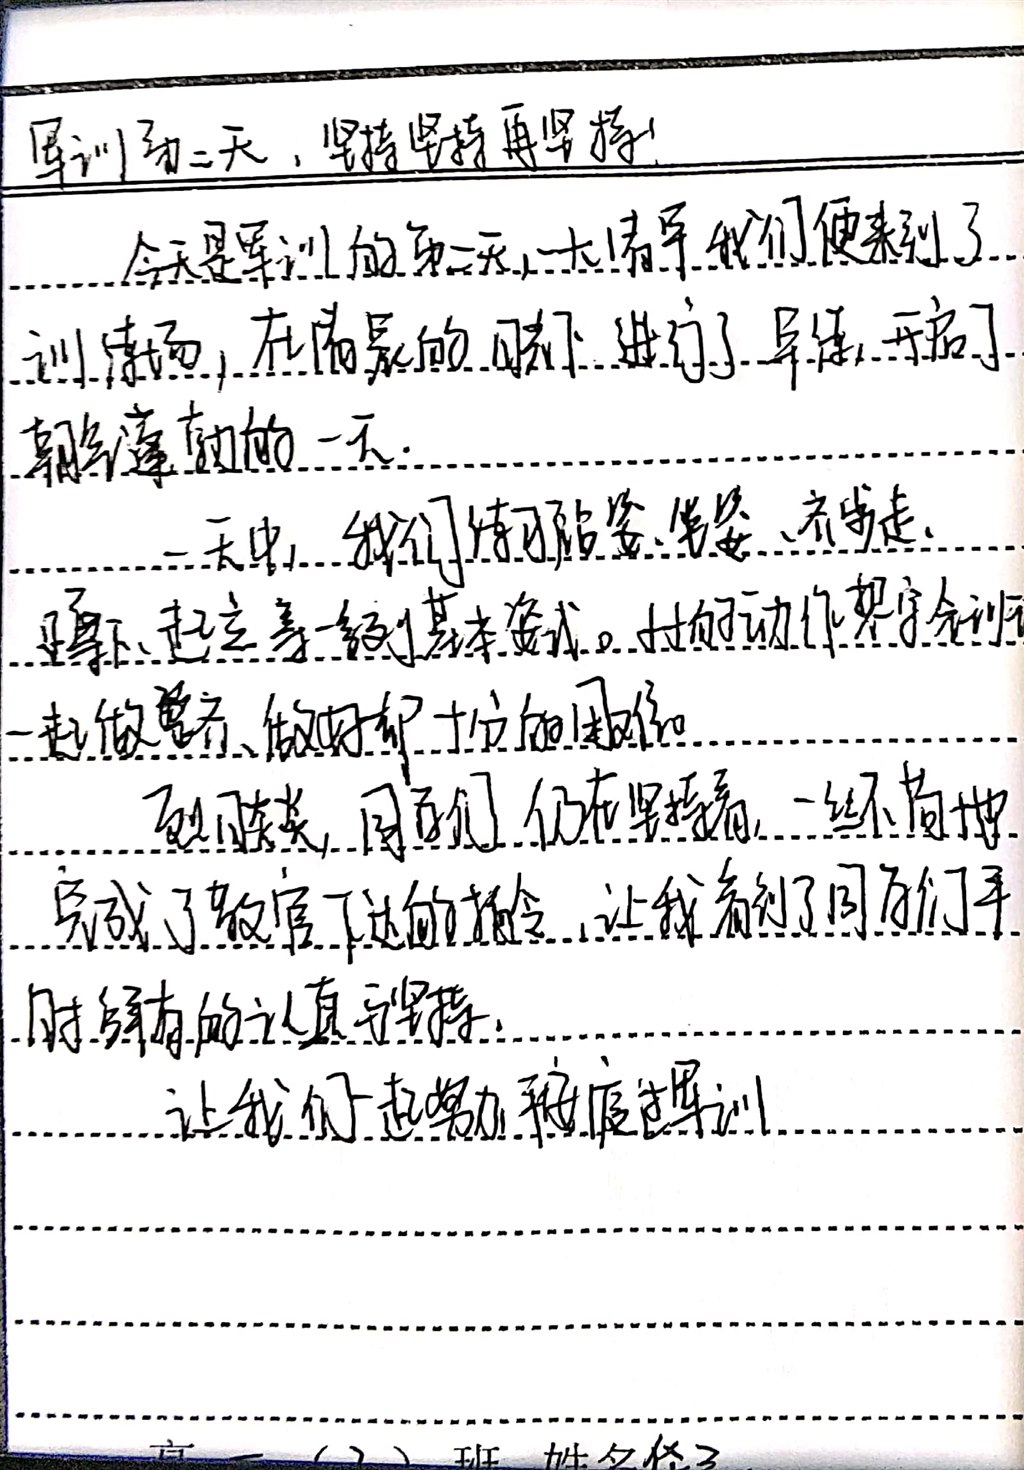 军训第二天，坚持坚持再坚持！
今天是军训的第二天，一大清早我们便来到了
训练场，在清晨的阳光下进行了早练，开启了
朝气蓬勃的一天.
一天中，我们练习站姿、坐姿、齐步走、
蹲下、起立等一系列基本姿式。一个个的动作想要全训
一起做整齐、做好却十分的困难。
烈日炎炎，同学们仍在坚持着，一丝不苟地
完成了教官下达的指令，让我看到了同学们平
时鲜有的认真与坚持.
让我们一起努力平安度过军训
高一（2）班 姓名